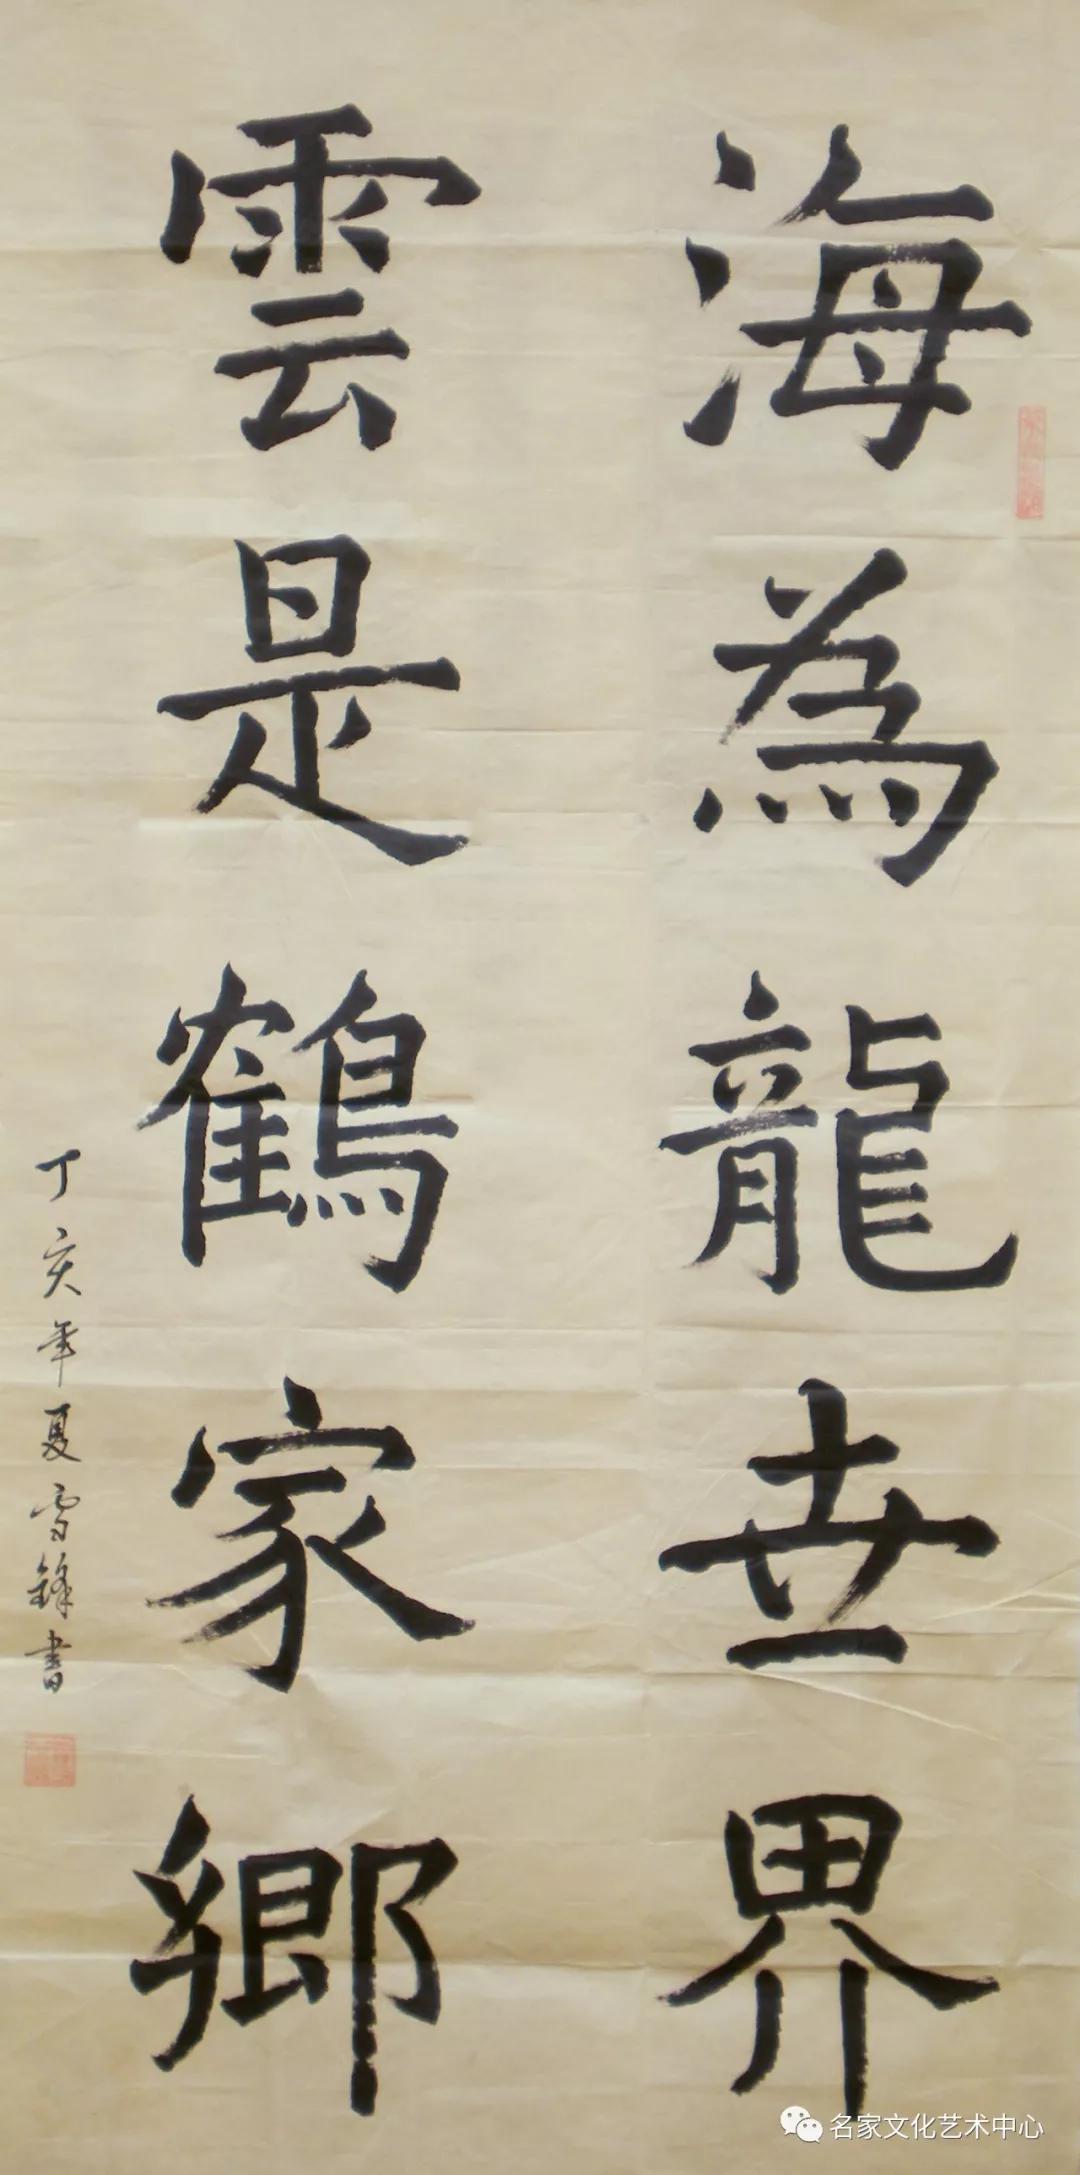 海為龍世界
雲是鶴家鄉
丁亥年夏雪鋒書
名家文化艺术中心